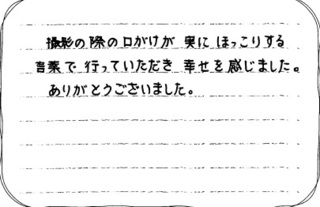 撮影の際の口がけが 実に ほっこりする
言葉で 行っていただき 幸せを感じました。
ありがとうございました。